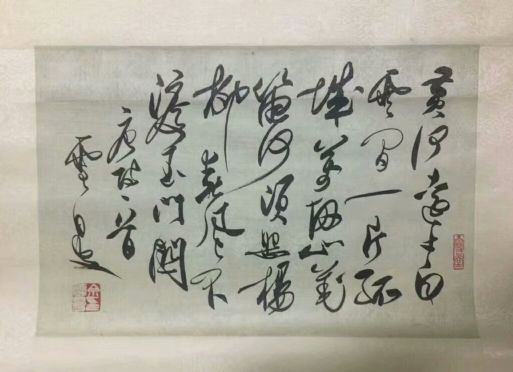 黄河遠上白
雲間一片孤
城萬仞山羌
笛何須怨楊
柳春風不
渡玉門關
唐诗一首
雲